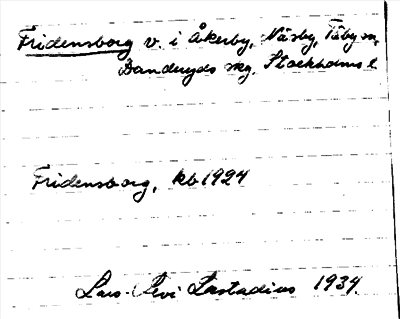 Fridensborg v. i Åkerby, Näsby, Täby sn,
Danderyds skg. Stockholms l.
Fridensborg, kb 1924
Lars-Levi Læstadius 1934.